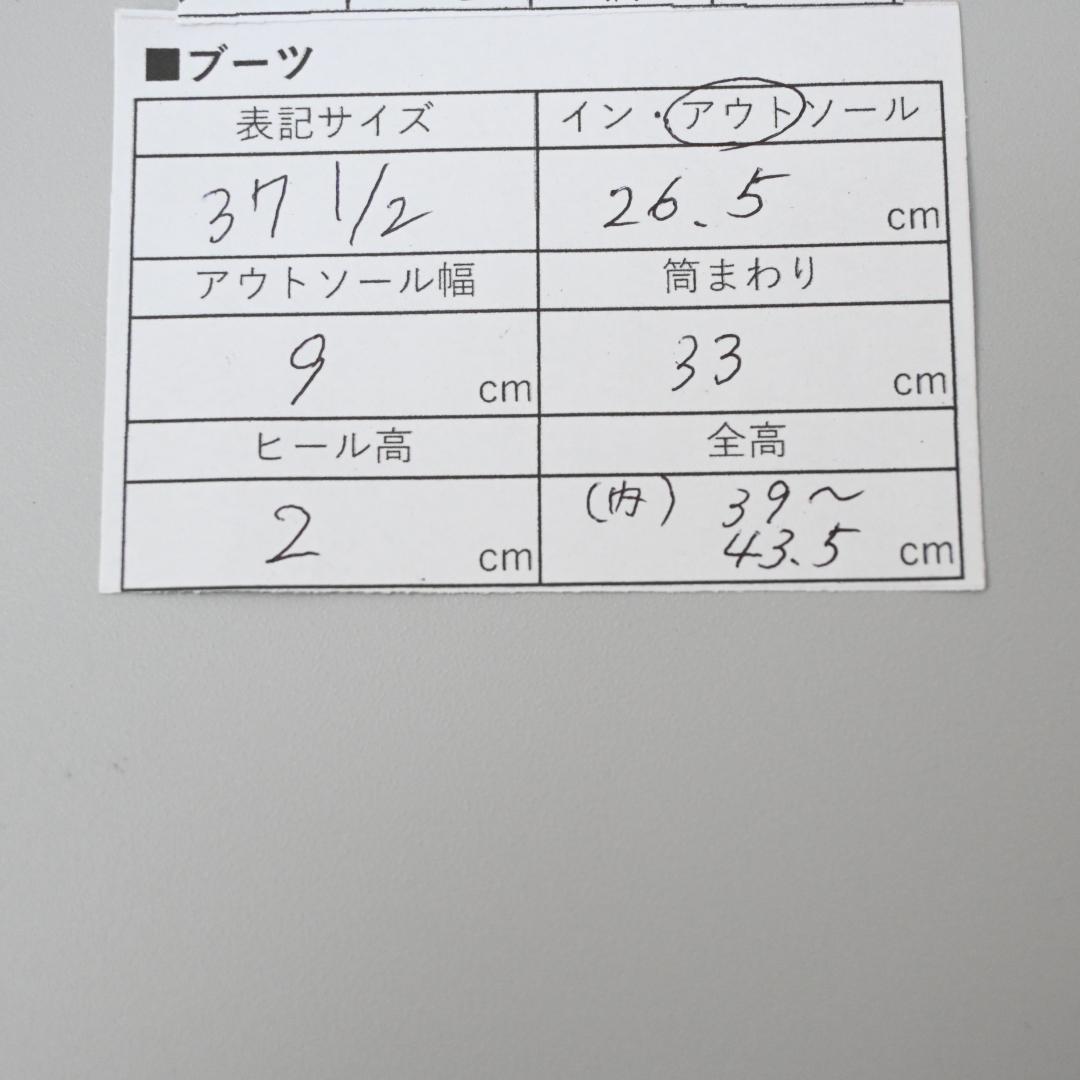 ■ブーツ
表記サイズ
イン・アウトソール
37 1/2
26.5 cm
アウトソール幅
筒まわり
9 cm
33 cm
ヒール高
全高
2 cm
(内) 39〜
43.5 cm